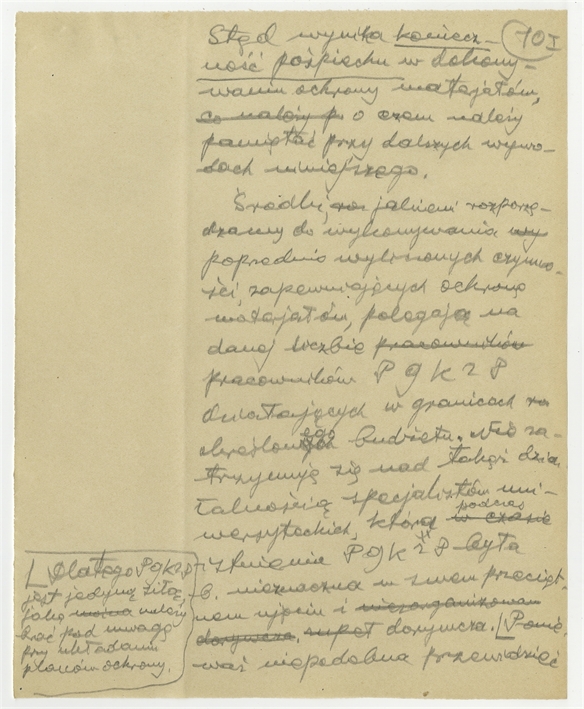 10I
Stąd wynika koniecz-
ność pośpiechu w dokony-
waniu ochrony watajatów,
co należy p. o czem należy
pamiętać przy dalszych wywo-
dach niniejszego.
Środki, jakiemi rozporzą-
dzamy do wykonywania wy
poprednio wyłuszczonych czynno-
ści, zapewniających ochronę
matajatów, polegają na
danej liczbie pracowników
pracowników PGKZP
działających w granicach
określonego budżetu. Nie za-
trzymuję się nad takąż dzia-
łalnością specjalistów uni-
wersyteckich, która w czasie
podczas
istnienia PGKZP była
b. nieznaczna w swem przecięt-
nem ujęciu i niezorganizowana
dorywcza, dorywcza. [Ponie-
waż niepodobna przewidzieć
[Dlatego PGKZP
jest jedyną siłą,
jaką należy
brać pod uwagę
przy układaniu
planów ochrony.